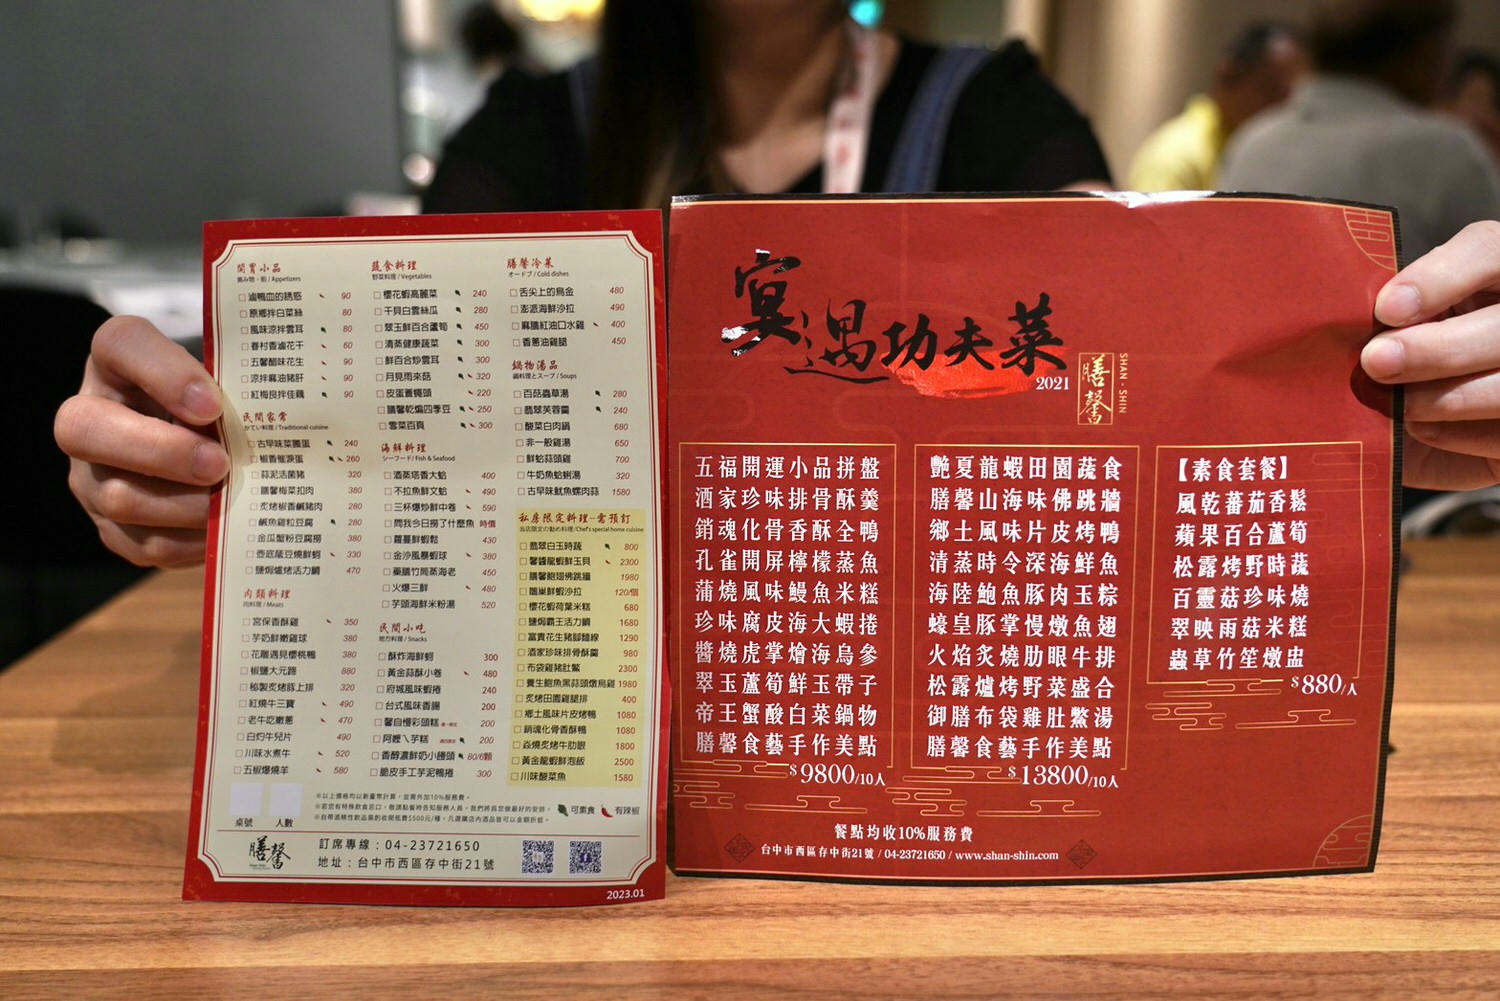 開胃小品
摘み物・前 / Appetizers
滷鴨血的誘惑 90
原鄉拌白菜絲 80
風味涼拌雲耳 80
眷村香滷花干 60
五馨醋味花生 90
涼拌麻油豬肝 90
紅梅良拌佳藕 90
民間家常
かてい料理 / Traditional cuisine
古早味菜脯蛋 240
椒香催淚蛋 260
蒜泥活菌豬 320
膳馨梅菜扣肉 380
炙烤椒香鹹豬肉 280
鹹魚雞粒豆腐 280
金瓜蟹粉豆腐撈 380
壺底蔭豆燒鮮蚵 330
鹽焗爐烤活力鯛 470
肉類料理
肉料理 / Meats
宮保香酥雞 350
芋奶鮮嫩雞球 380
花雕遇見櫻桃鴨 380
椒鹽大元蹄 880
秘製炙烤豚上排 320
紅燒牛三寶 490
老牛吃嫩蔥 470
白灼牛兒片 490
川味水煮牛 520
五椒爆燒羊 580
蔬食料理
野菜料理 / Vegetables
櫻花蝦高麗菜 240
干貝白雲絲瓜 280
翠玉鮮百合蘆筍 450
清蒸健康蔬菜 300
鮮百合炒雲耳 300
月見雨來菇 320
皮蛋蒼蠅頭 220
膳馨乾煸四季豆 250
雪菜百頁 300
海鮮料理
シーフード / Fish & Seafood
酒蒸塔香大蛤 400
不拉魚鮮文蛤 490
三杯爆炒鮮中卷 590
問我今日撈了什麼魚 時價
蘿蔓鮮蝦鬆 430
金沙風暴蝦球 380
藥膳竹筒蒸海老 450
火爆三鮮 480
芋頭海鮮米粉湯 520
民間小吃
地方料理 / Snacks
酥炸海鮮蚵 300
黃金蒜酥小卷 480
府城風味蝦捲 240
台式風味香腸 200
馨自慢彩頭糕 200
阿嬤ㄟ芋糕 200
香醇濃鮮奶小饅頭 80/6顆
脆皮手工芋泥鴨捲 300
膳馨冷菜
オードブ / Cold dishes
舌尖上的烏金 480
澎派海鮮沙拉 490
麻膳紅油口水雞 400
香蔥油雞腿 450
鍋物湯品
鍋料理とスープ / Soups
百菇蟲草湯 280
翡翠芙蓉羹 240
酸菜白肉鍋 680
非一般雞湯 650
鮮蛤蒜頭雞 700
牛奶魚蛤蜊湯 320
古早味魷魚螺肉蒜 1580
私房限定料理–需預訂
当店限定の勧め料理/Chef's special home cuisine
翡翠白玉時蔬 800
馨醬龍蝦鮮玉貝 2300
膳馨鮑翅佛跳牆 1980
鵲巢鮮蝦沙拉 120/個
櫻花蝦荷葉米糕 680
鹽焗霸王活力鯛 1680
富貴花生豬腳麵線 1290
酒家珍味排骨酥羹 980
布袋雞豬肚鱉 2300
養生鮑魚黑蒜頭燉烏雞 1980
炙烤田園雞腿排 400
鄉土風味片皮烤鴨 1080
銷魂化骨香酥鴨 1080
焱燒炙烤牛肋眼 1800
黃金龍蝦鮮泡飯 2500
川味酸菜魚 1580
※以上價格均以新臺幣計算,並需外加10%服務費。
※若您有特殊飲食忌口,敬請點餐時告知服務人員,我們將為您做最好的安排。
※自帶酒精性飲品需酌收開瓶費$500元/種,凡選購店內酒品皆可以全額折抵。
可素食 有辣椒
桌號 人數
膳馨
訂席專線:04-23721650
地址:台中市西區存中街21號
2023.01
宴遇功夫菜
2021
膳馨
SHAN · SHIN
五福開運小品拼盤
酒家珍味排骨酥羹
銷魂化骨香酥全鴨
孔雀開屏檸檬蒸魚
蒲燒風味鰻魚米糕
珍味腐皮海大蝦捲
醬燒虎掌燴海烏參
翠玉蘆筍鮮玉帶子
帝王蟹酸白菜鍋物
膳馨食藝手作美點
$9800/10人
艷夏龍蝦田園蔬食
膳馨山海味佛跳牆
鄉土風味片皮烤鴨
清蒸時令深海鮮魚
海陸鮑魚豚肉玉粽
蠔皇豚掌慢燉魚翅
火焰炙燒肋眼牛排
松露爐烤野菜盛合
御膳布袋雞肚鱉湯
膳馨食藝手作美點
$13800/10人
【素食套餐】
風乾蕃茄香鬆
蘋果百合蘆筍
松露烤野時蔬
百靈菇珍味燒
翠映雨菇米糕
蟲草竹笙燉盅
$880/人
餐點均收10%服務費
台中市西區存中街21號 / 04-23721650 / www.shan-shin.com